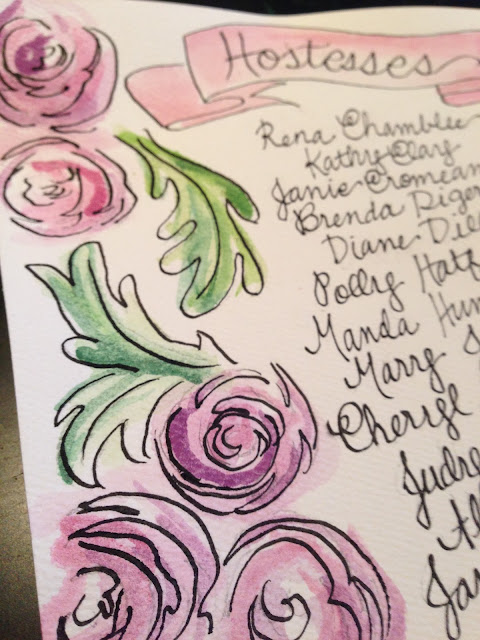 Hostesses
Rena Chamblee
Kathy Clay
Janie Cromean
Brenda
Diane Dil
Polly Hat
Manda Hum
Marry
Cheryl